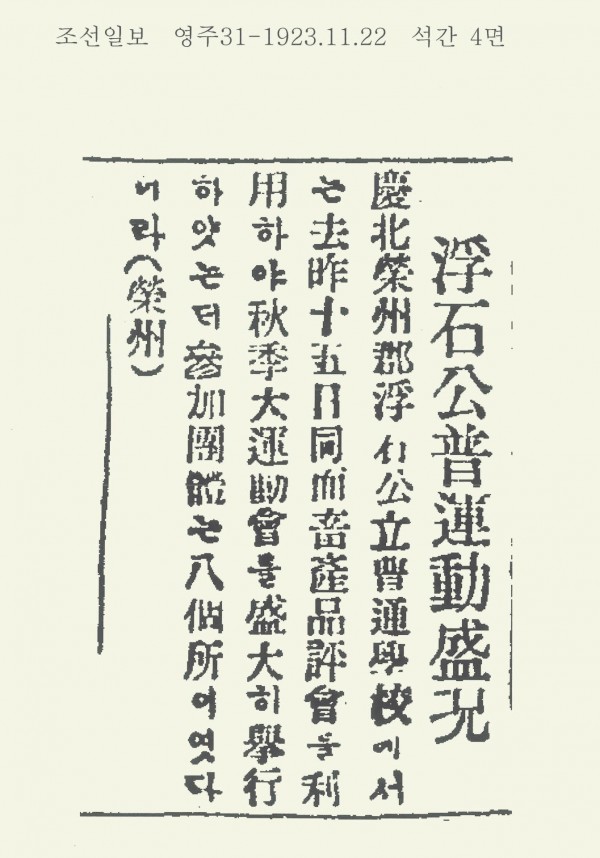 조선일보 영주31-1923.11.22 석간 4면
浮石公普運動盛况
慶北榮州郡浮石公立普通學校에서
는去昨十五日同面畜産品評會를利
用하야秋季大運動會를盛大히擧行
하얏는데參加團體는八個所이엿다
더라(榮州)